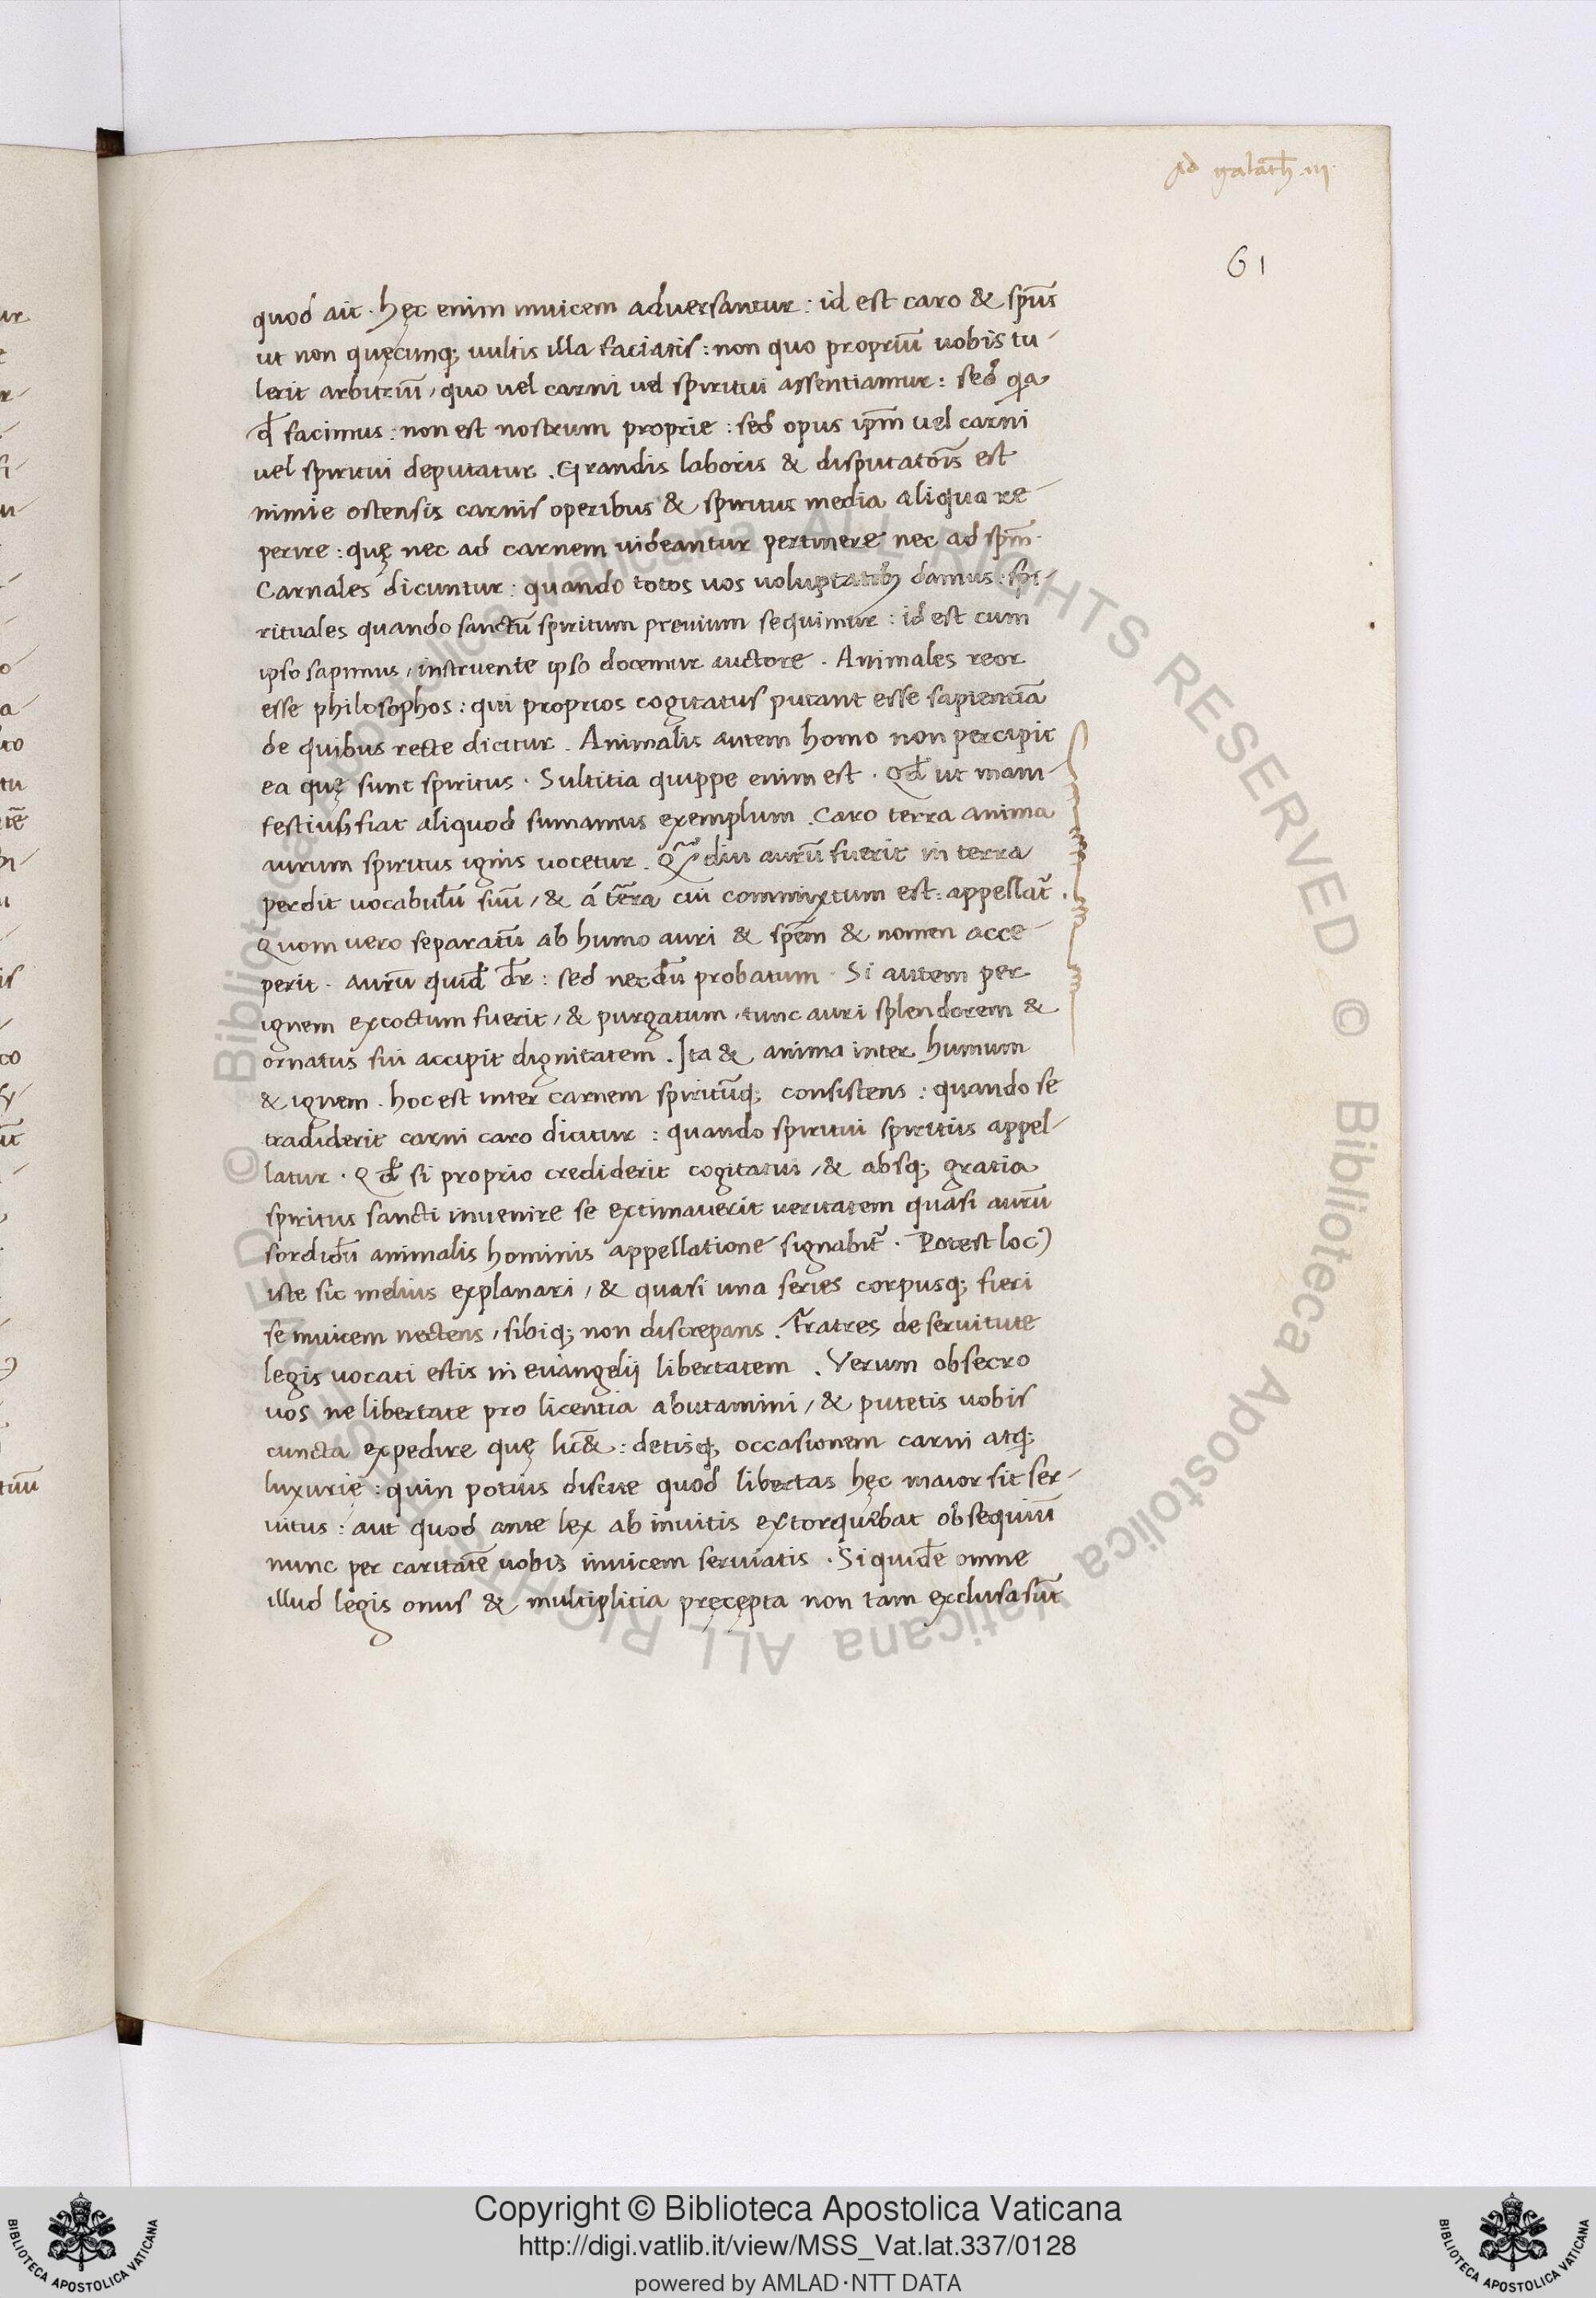 ad galath̄ .iij.
61
quod ait . hęc enim inuicem adversantur : id est caro & sp̄us
ut non quęcunq; uultis illa faciatis : non quo propriū uobis tu-
lerit arbitriū, quo vel carni vel spiritui assentiamur : sed q̄a
qđ facimus : non est nostrum proprie : sed opus ip̄m vel carni
vel spiritui deputatur . Grandis laboris & disputatōis est
nimie ostensis carnis operibus & spiritus media aliqua re-
perire : quę nec ad carnem videantur pertinere nec ad sp̄m .
Carnales dicuntur : quando totos uos uoluptatib; damus : spi-
rituales quando sanctū spiritum previum sequimur : id est cum
ipso sapimus, instruente ipso docemur auctore . Animales reor
esse philosophos : qui proprios cogitatus putant esse sapientiā
de quibus recte dicitur . Animalis autem homo non percipit
ea quę sunt spiritus . Sultitia quippe enim est . Qđ ut mani-
festius fiat aliquod sumamus exemplum . Caro terra anima
aurum spiritus ignis uocetur . Q̄diu aurū fuerit in terra
perdit uocabulū suū, & á t̄era cui commixtum est : appellat̄ .
Quom vero separatū ab humo auri & sp̄em & nomen acce-
perit . aurū quid̄ dr̄ : sed necdū probatum . Si autem per
ignem excoctum fuerit, & purgatum, tunc auri splendorem &
ornatus sui accipit dignitatem . Ita & anima inter humum
& ignem . hoc est inter carnem spiritūq; consistens : quando se
tradiderit carni caro dicitur : quando spiritui spiritus appel-
latur . Qđ si proprio crediderit cogitatui, & absq; gratia
spiritus sancti invenire se extimaverit veritatem quasi aurū
sordidū animalis hominis appellatione signabit̄ . Potest loc)
iste sic melius explanari, & quasi una series corpusq; fieri
se inuicem nectens, sibiq; non discrepans . Fratres de servitute
legis vocati estis in evangelij libertatem . Verum obsecro
vos ne libertate pro licentia abutamini, & putetis uobis
cuncta expedire quę lic& : detisq; occasionem carni atq;
luxurię : quin potius discite quod libertas hęc maior sit ser-
vitus : aut quod ante lex ab invitis extorquebat obsequiū
nunc per caritatē uobis invicem serviatis . Si quidē omne
illud legis onus & multiplicia pręcępta non tam exclusa sūt
© Biblioteca Apostolica Vaticana ALL RIGHTS RESERVED
© Biblioteca Apostolica Vaticana ALL RIGHTS RESERVED
Copyright © Biblioteca Apostolica Vaticana
http://digi.vatlib.it/view/MSS_Vat.lat.337/0128
powered by AMLAD·NTT DATA
BIBLIOTECA APOSTOLICA VATICANA
BIBLIOTECA APOSTOLICA VATICANA